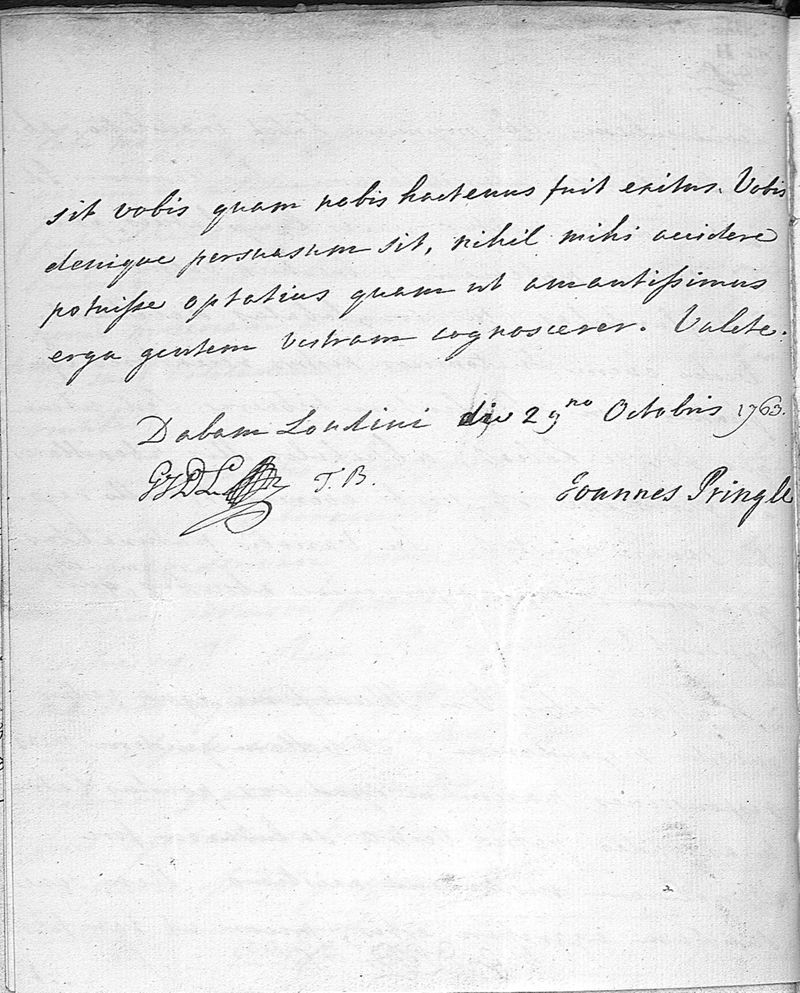 sit vobis quam nobis hactenus fuit exitus. Vobis
denique persuasum sit, nihil mihi accidere
potuisse optatius quam ut amantissimus
erga gentem vestram cognoscerer. Valete.
Dabam Londini die 29no Octobris 1763.
T. B.
Joannes Pringle